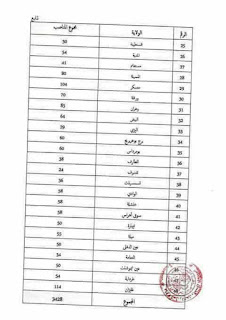 تابع
الرقم الولاية مجموع المناصب
25 قسنطينة 50
26 المدية 54
27 مستغانم 41
28 المسيلة 80
29 معسكر 104
30 ورقلة 70
31 وهران 85
32 البيض 64
33 اليزي 50
34 برج بوعريريج 50
35 بومرداس 60
36 الطارف 58
37 تندوف 24
38 تيسمسيلت 58
39 الوادي 58
40 خنشلة 58
41 سوق أهراس 58
42 تيبازة 50
43 ميلة 55
44 عين الدفلى 50
45 النعامة 54
عين تموشنت 50
غرداية 54
غليزان 114
المجموع 3428